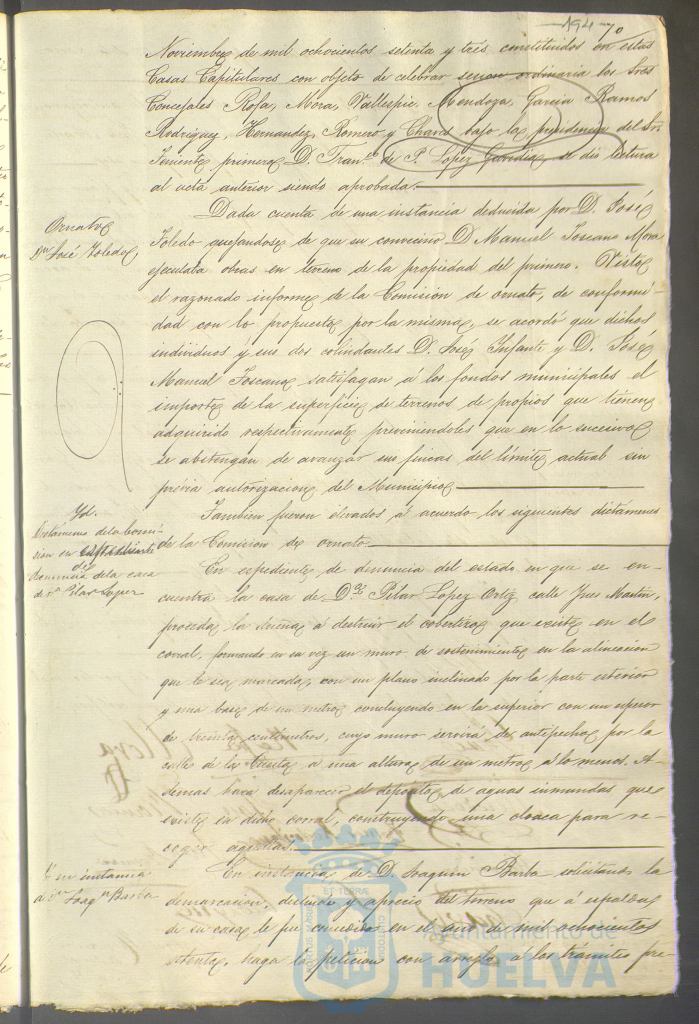 194 70
Noviembre de mil ochocientos setenta y tres constituidos en estas
Casas Capitulares con objeto de celebrar sesion ordinaria los Sres
Concejales Rofa, Mora, Vallespin, Mendoza, Garcia Ramos
Rodriguez, Hernandez, Romero y Chares bajo la presidencia del Sr.
Teniente primero D. Fran.co de P. Lopez se dio lectura
al acta anterior siendo aprobada.
Ornato
Dn José Toledo,
Dada cuenta de una instancia deducida por D. José
Toledo quejandose de que su convecino D. Manuel Toscano Mora
ejecutaba obras en terreno de la propiedad del primero. Visto
el razonado informe de la Comision de ornato, de conformi-
dad con lo propuesto por la misma, se acordó que dichos
individuos y sus dos colindantes D. José Infante y D. José
Manuel Toscano satisfagan á los fondos municipales el
importe de la superficie de terrenos de propios que tienen
adquirido respectivamente previniendoles que en lo sucesivo
se abstengan de avanzar sus fincas del límite actual sin
prévia autorizacion del Municipio
Yd.
Dictamenes de la Comi-
sion en expediente
de
denuncia de la casa
de Da Pilar Lopez
Tambien fueron elevados á acuerdo los siguientes dictámenes
de la Comision de ornato.
En expediente de denuncia del estado en que se en-
cuentra la casa de Da Pilar Lopez Ortiz calle Ynes Martin,
proceda la dueña á destruir el cobertizo que existe en el
corral, formando en su vez un muro de sostenimiento en la alineacion
que le sea marcada, con un plano inclinado por la parte esterior
y una base de un metro concluyendo en la superior con un espesor
de treinta centímetros, cuyo muro servirá de antipecho por la
calle de la á una altura de un metro á lo menos. A-
demas hará desaparecer el depósito de aguas inmundas que
existe en dicho corral, construyendo una cloaca para re-
coger aquellas.
Yd en instancia
de Dn Joaqn Barba
En instancia de D. Joaquin Barba solicitando la
demarcacion, deslinde y aprecio del terreno que á espaldas
de su casa le fue concedido en el año de mil ochocientos
setenta, haga la peticion con arreglo á los trámites pre-
Ayuntamiento de
HUELVA